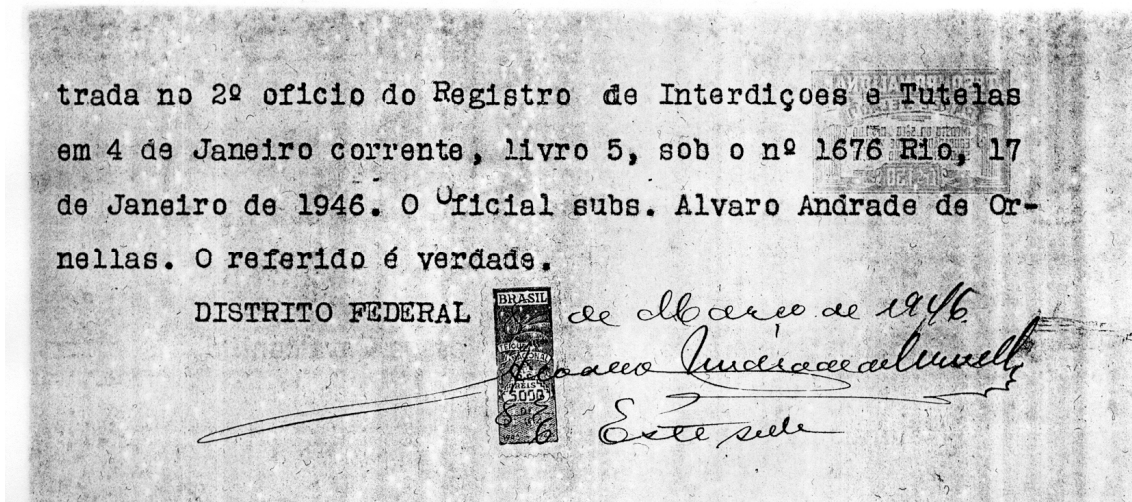 trada no 2º oficio do Registro de Interdiçoes e Tutelas
em 4 de Janeiro corrente, livro 5, sob o nº 1676 Rio, 17
de Janeiro de 1946. O Oficial subs. Alvaro Andrade de Or-
nellas. O referido é verdade.
DISTRITO FEDERAL
BRASIL
de Março de 1946
Andrade de
5000
Este selo